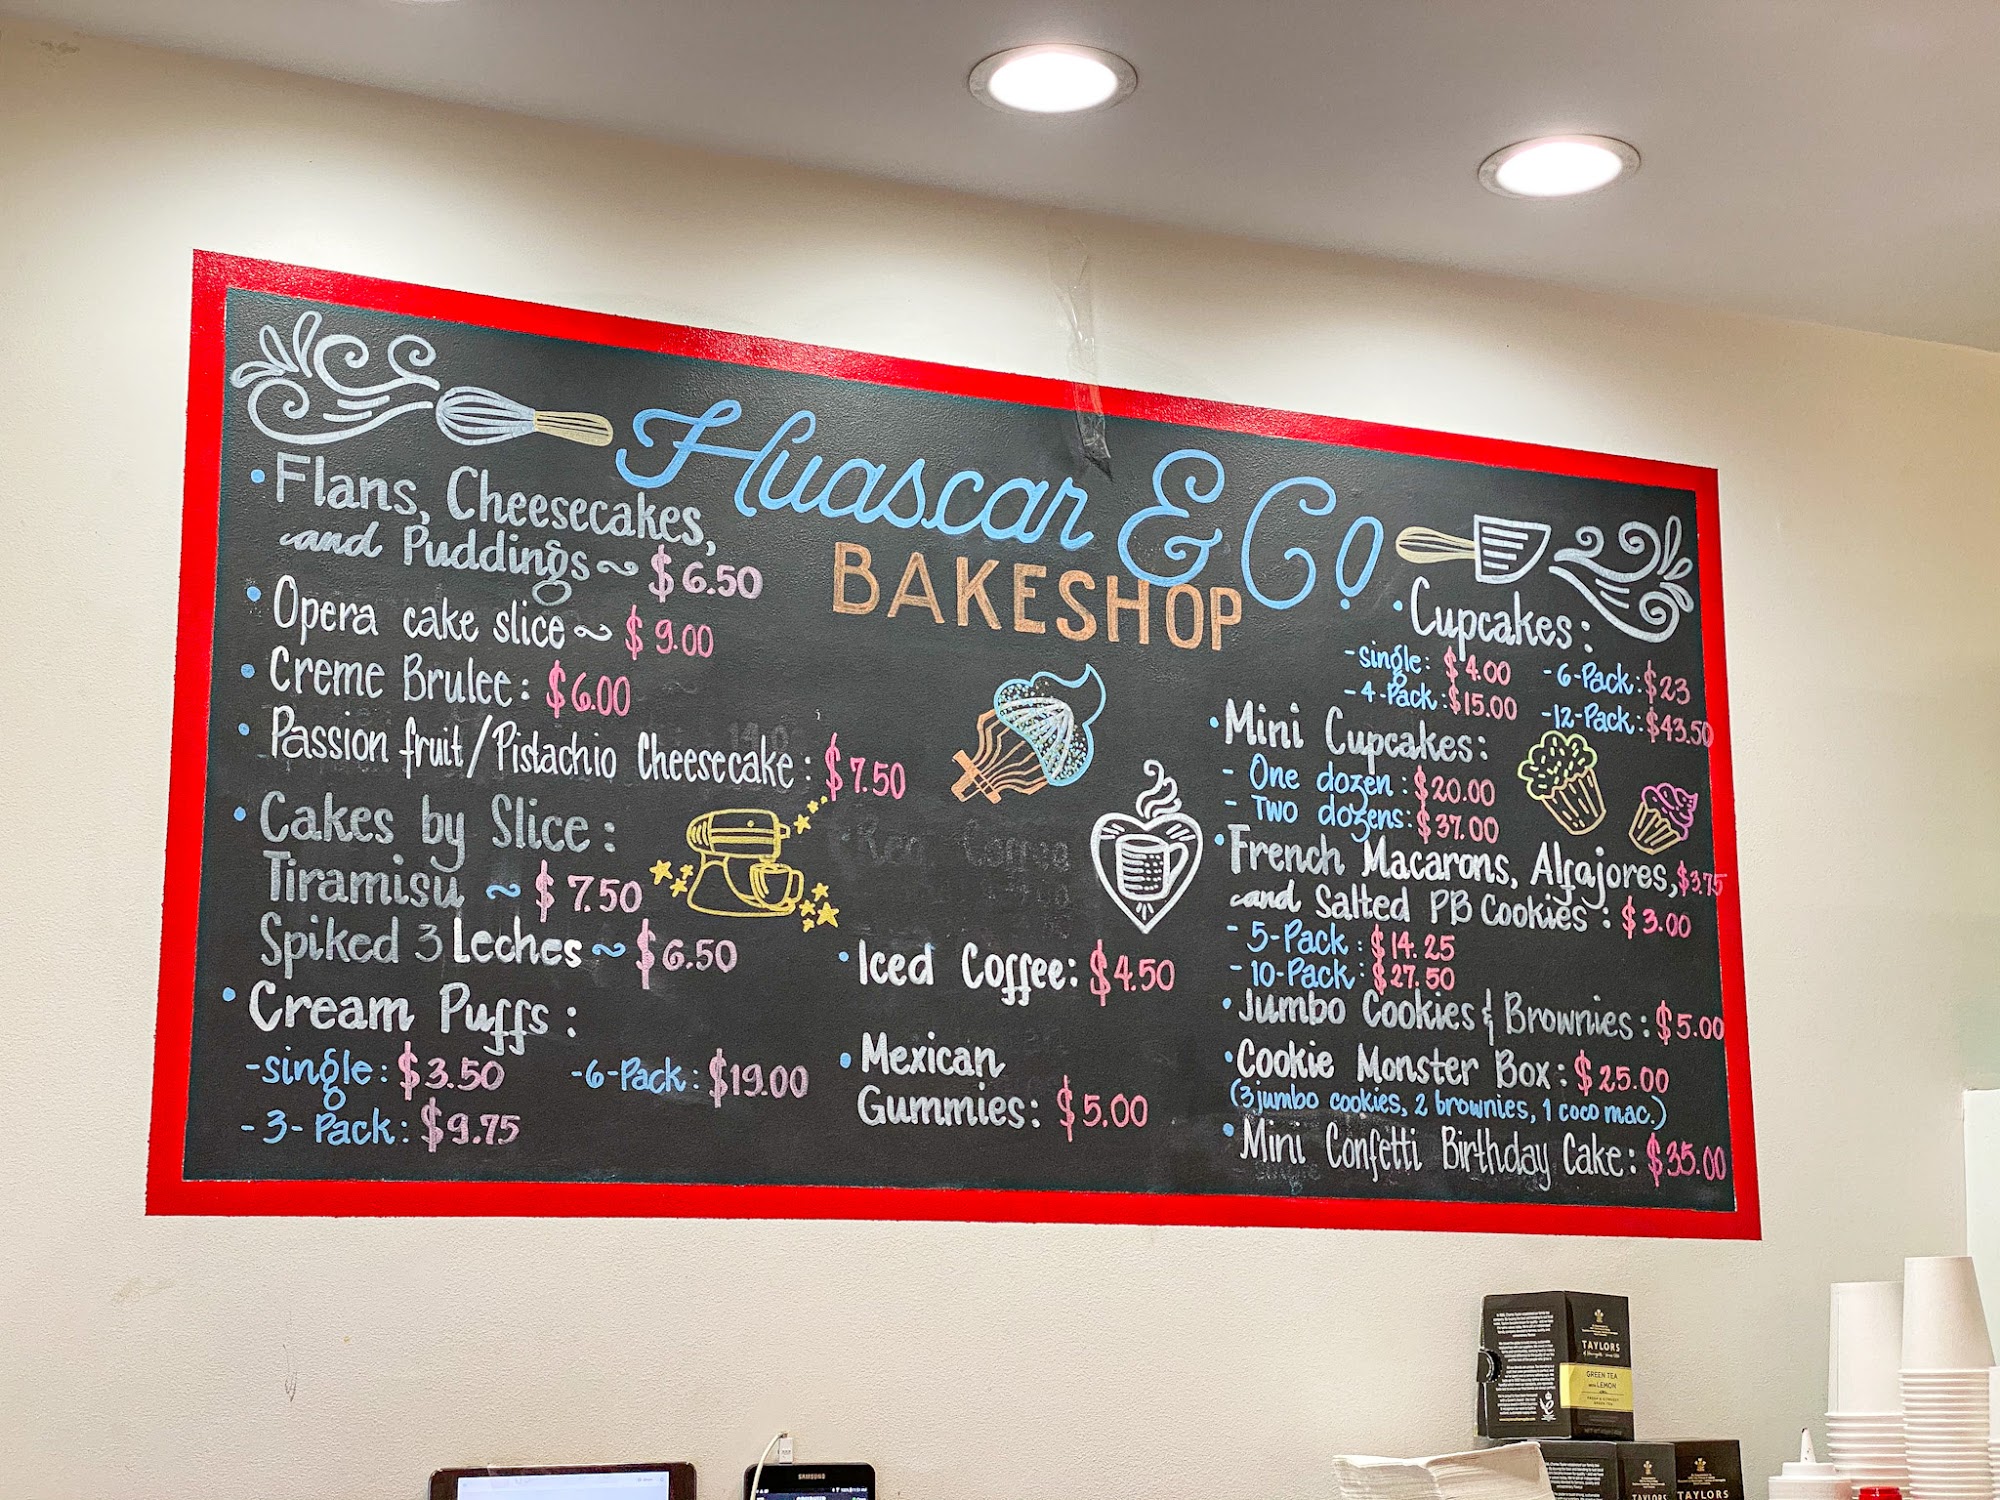 Huascar & Co.
BAKESHOP
• Flans, Cheesecakes,
and Puddings ~ $6.50
• Opera cake slice ~ $9.00
• Creme Brulee: $6.00
• Passion fruit/Pistachio Cheesecake: $7.50
• Cakes by Slice:
Tiramisu ~ $7.50
Spiked 3 Leches ~ $6.50
• Cream Puffs:
-single: $3.50 -6-Pack: $19.00
-3-Pack: $9.75
• Iced Coffee: $4.50
• Mexican
Gummies: $5.00
• Cupcakes:
-single: $4.00 -6-Pack: $23
-4-Pack: $15.00 -12-Pack: $43.50
• Mini Cupcakes:
- One dozen: $20.00
- Two dozens: $37.00
• French Macarons, Alfajores, $3.75
and Salted PB Cookies: $3.00
- 5-Pack: $14.25
- 10-Pack: $27.50
• Jumbo Cookies & Brownies: $5.00
• Cookie Monster Box: $25.00
(3 jumbo cookies, 2 brownies, 1 coco mac.)
• Mini Confetti Birthday Cake: $35.00
TAYLORS
GREEN TEA
with LEMON
TAYLORS
TAYLORS
SAMSUNG